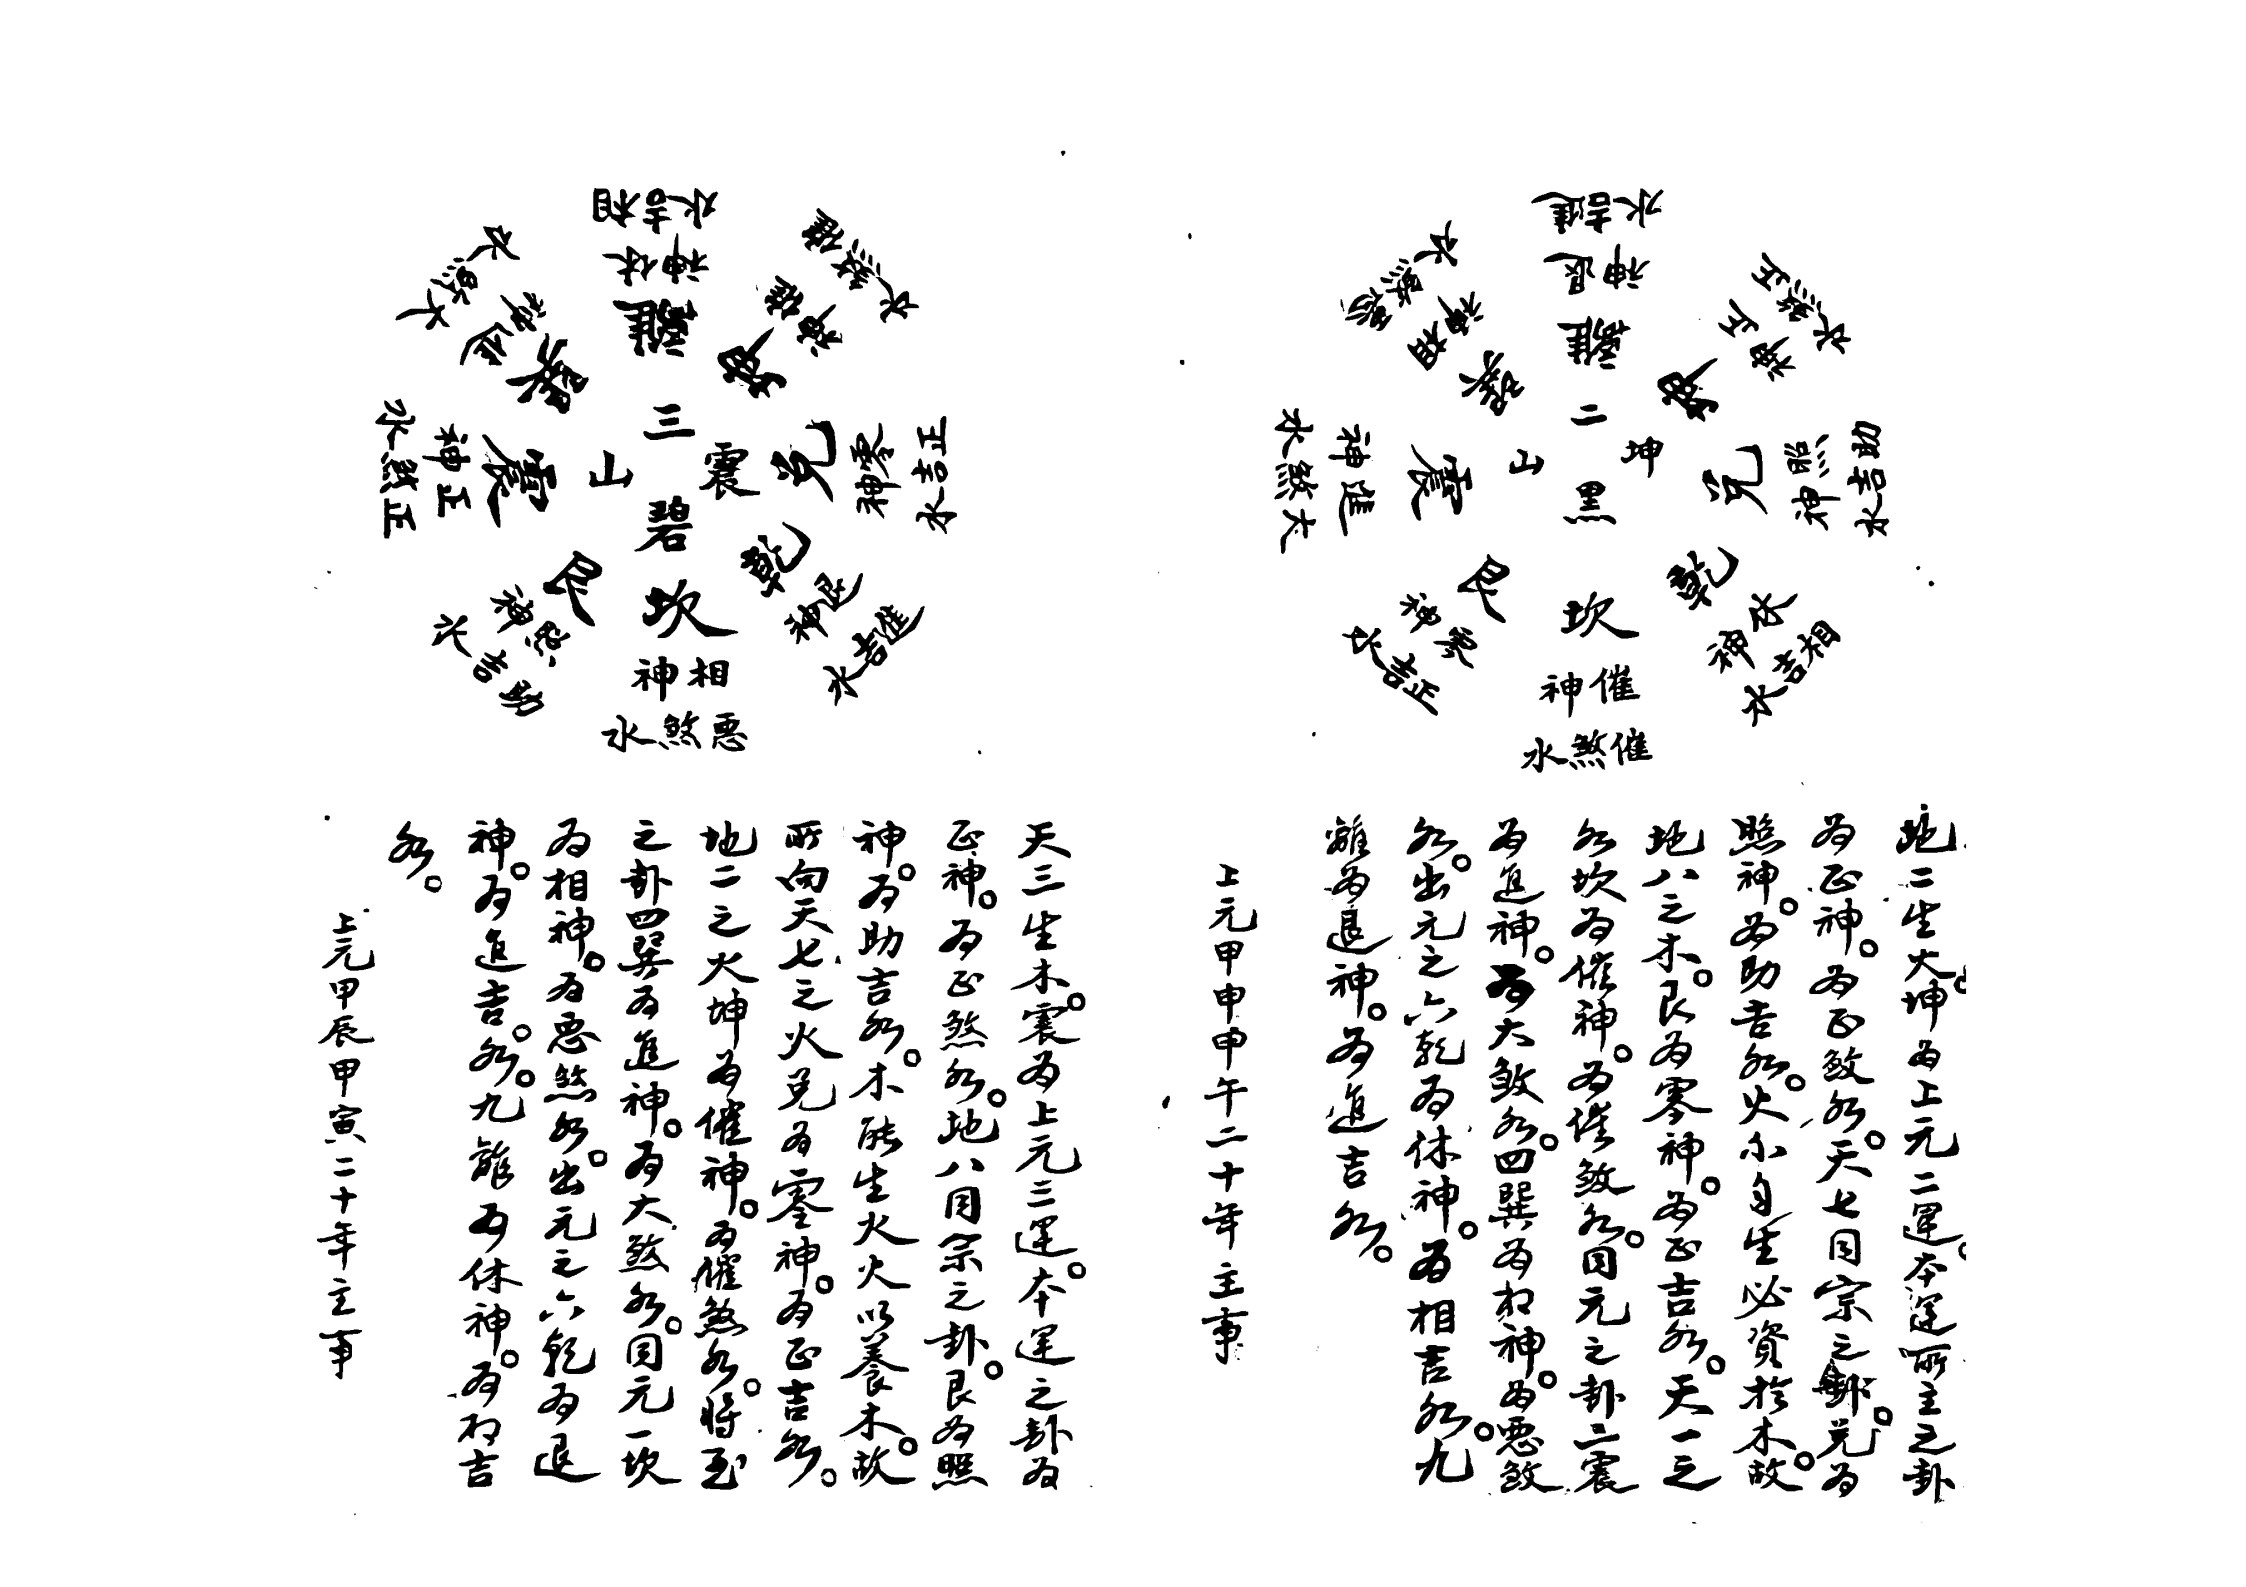 離
退神
進吉水
坤
正神
正煞水
兌
照神
助吉水
乾
休神
相吉水
坎
催神
催煞水
艮
零神
正吉水
震
進神
大煞水
巽
相神
惡煞水
二黑
坤山
地二生火。坤為上元二運。本運所主之卦
為正神。為正煞水。天七同宗之卦。兌為
照神。為助吉水。火不自生必資於木。故
地八之木。艮為零神。為正吉水。天一之
水坎為催神。為催煞水。同元之卦三震
為進神。為大煞水。四巽為相神。為惡煞
水。出元之六乾為休神。為相吉水。九
離為退神。為進吉水。
上元甲申甲午二十年主事
離
休神
相吉水
坤
催神
催煞水
兌
零神
正吉水
乾
退神
進吉水
坎
相神
惡煞水
艮
照神
助吉水
震
正神
正煞水
巽
神
大煞水
三碧
震山
天三生木。震為上元三運。本運之卦為
正神。為正煞水。地八同宗之卦。艮為照
神。為助吉水。木能生火火以養木。故
所向天七之火兌為零神。為正吉水。
地二之火坤為催神。為催煞水。將至
之卦四巽為進神。為大煞水。同元一坎
為相神。為惡煞水。出元之六乾為退
神。為進吉。水。九離為休神。為相吉
水。
上元甲辰甲寅二十年主事